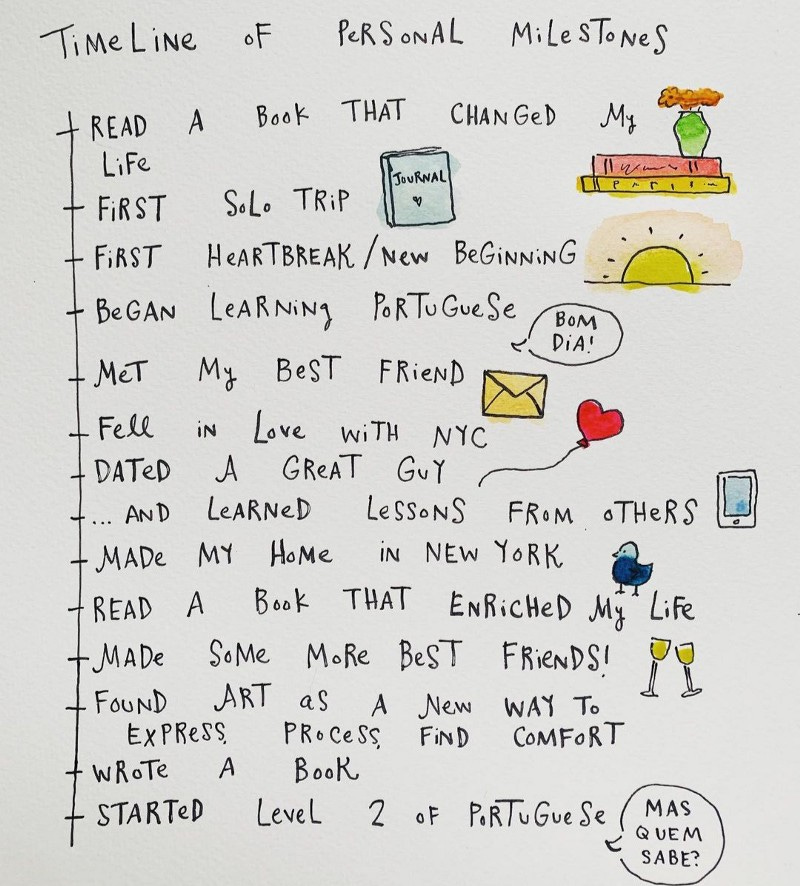 TiMeLiNe oF PeRSoNAL MiLeSToNeS
READ A Book THAT CHANGeD My
LiFe
JouRNAL
FiRST SoLo TRiP
FiRST HeARTBREAK/New BeGiNNiNG
BeGAN LeARNiNg PoRTuGueSe
BoM
DiA!
MeT My BeST FRieND
Fell iN Love wiTH NYC
DATeD A GReAT GuY
... AND LeARNeD LeSSoNS FRoM oTHeRS
MADe MY HoMe iN NEW YoRK
READ A Book THAT ENRiCHeD My LiFe
MADe SoMe MoRe BeST FRieNDS!
FouND ART aS A New WAY To
EXPReSS, PRoCeSS, FiND CoMFoRT
WRoTe A BooK
STARTeD LeveL 2 oF PoRTuGueSe
MAS
QUEM
SABE?